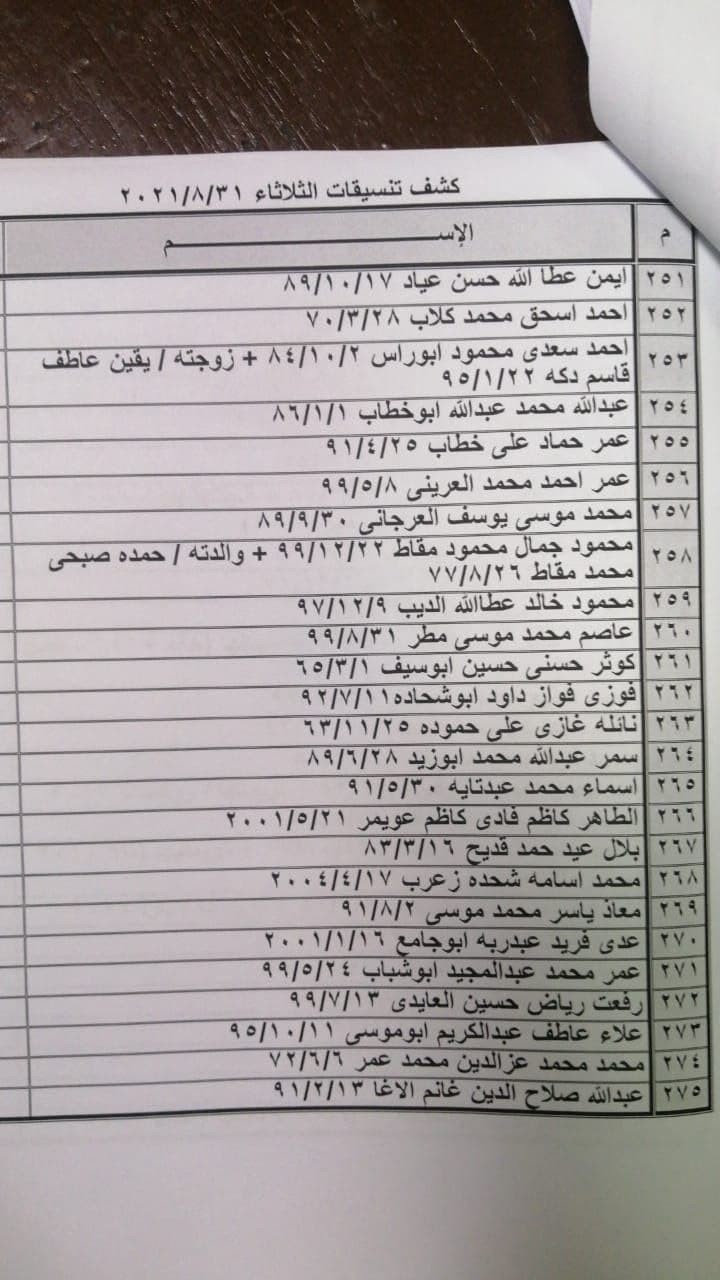 كشف تنسيقات الثلاثاء ٢٠٢١/٨/٣١
م الإســـــــــــــــــــــــــــــــــــم
٢٥١ ايمن عطا الله حسن عياد ٨٩/١٠/١٧
٢٥٢ احمد اسحق محمد كلاب ٧٠/٣/٢٨
٢٥٣ احمد سعدى محمود ابوراس ٨٤/١٠/٢ + زوجته / يقين عاطف
قاسم دكه ٩٥/١/٢٢
٢٥٤ عبدالله محمد عبدالله ابوخطاب ٨٦/١/١
٢٥٥ عمر حماد على خطاب ٩١/٤/٢٥
٢٥٦ عمر احمد محمد العرينى ٩٩/٥/٨
٢٥٧ محمد موسى يوسف العرجانى ٨٩/٩/٣٠
٢٥٨ محمود جمال محمود مقاط ٩٩/١٢/٢٢ + والدته / حمده صبحى
محمد مقاط ٧٧/٨/٢٦
٢٥٩ محمود خالد عطاالله الديب ٩٧/١٢/٩
٢٦٠ عاصم محمد موسى مطر ٩٩/٨/٣١
٢٦١ كوثر حسنى حسين ابوسيف ٦٥/٣/١
٢٦٢ فوزى فواز داود ابوشحاده ٩٢/٧/١١
٢٦٣ نائله غازى على حموده ٦٣/١١/٢٥
٢٦٤ سمر عبدالله محمد ابوزيد ٨٩/٦/٢٨
٢٦٥ اسماء محمد عبدتايه ٩١/٥/٣٠
٢٦٦ الطاهر كاظم فادى كاظم عويمر ٢٠٠١/٥/٢١
٢٦٧ بلال عيد حمد قديح ٨٣/٣/١٦
٢٦٨ محمد اسامه شحده زعرب ٢٠٠٤/٤/١٧
٢٦٩ معاذ ياسر محمد موسى ٩١/٨/٢
٢٧٠ عدى فريد عبدربه ابوجامع ٢٠٠١/١/١٦
٢٧١ عمر محمد عبدالمجيد ابوشباب ٩٩/٥/٢٤
٢٧٢ رفعت رياض حسين العايدى ٩٩/٧/١٣
٢٧٣ علاء عاطف عبدالكريم ابوموسى ٩٥/١٠/١١
٢٧٤ محمد محمد عزالدين محمد عمر ٧٢/٦/٦
٢٧٥ عبدالله صلاح الدين غانم الاغا ٩١/٢/١٣